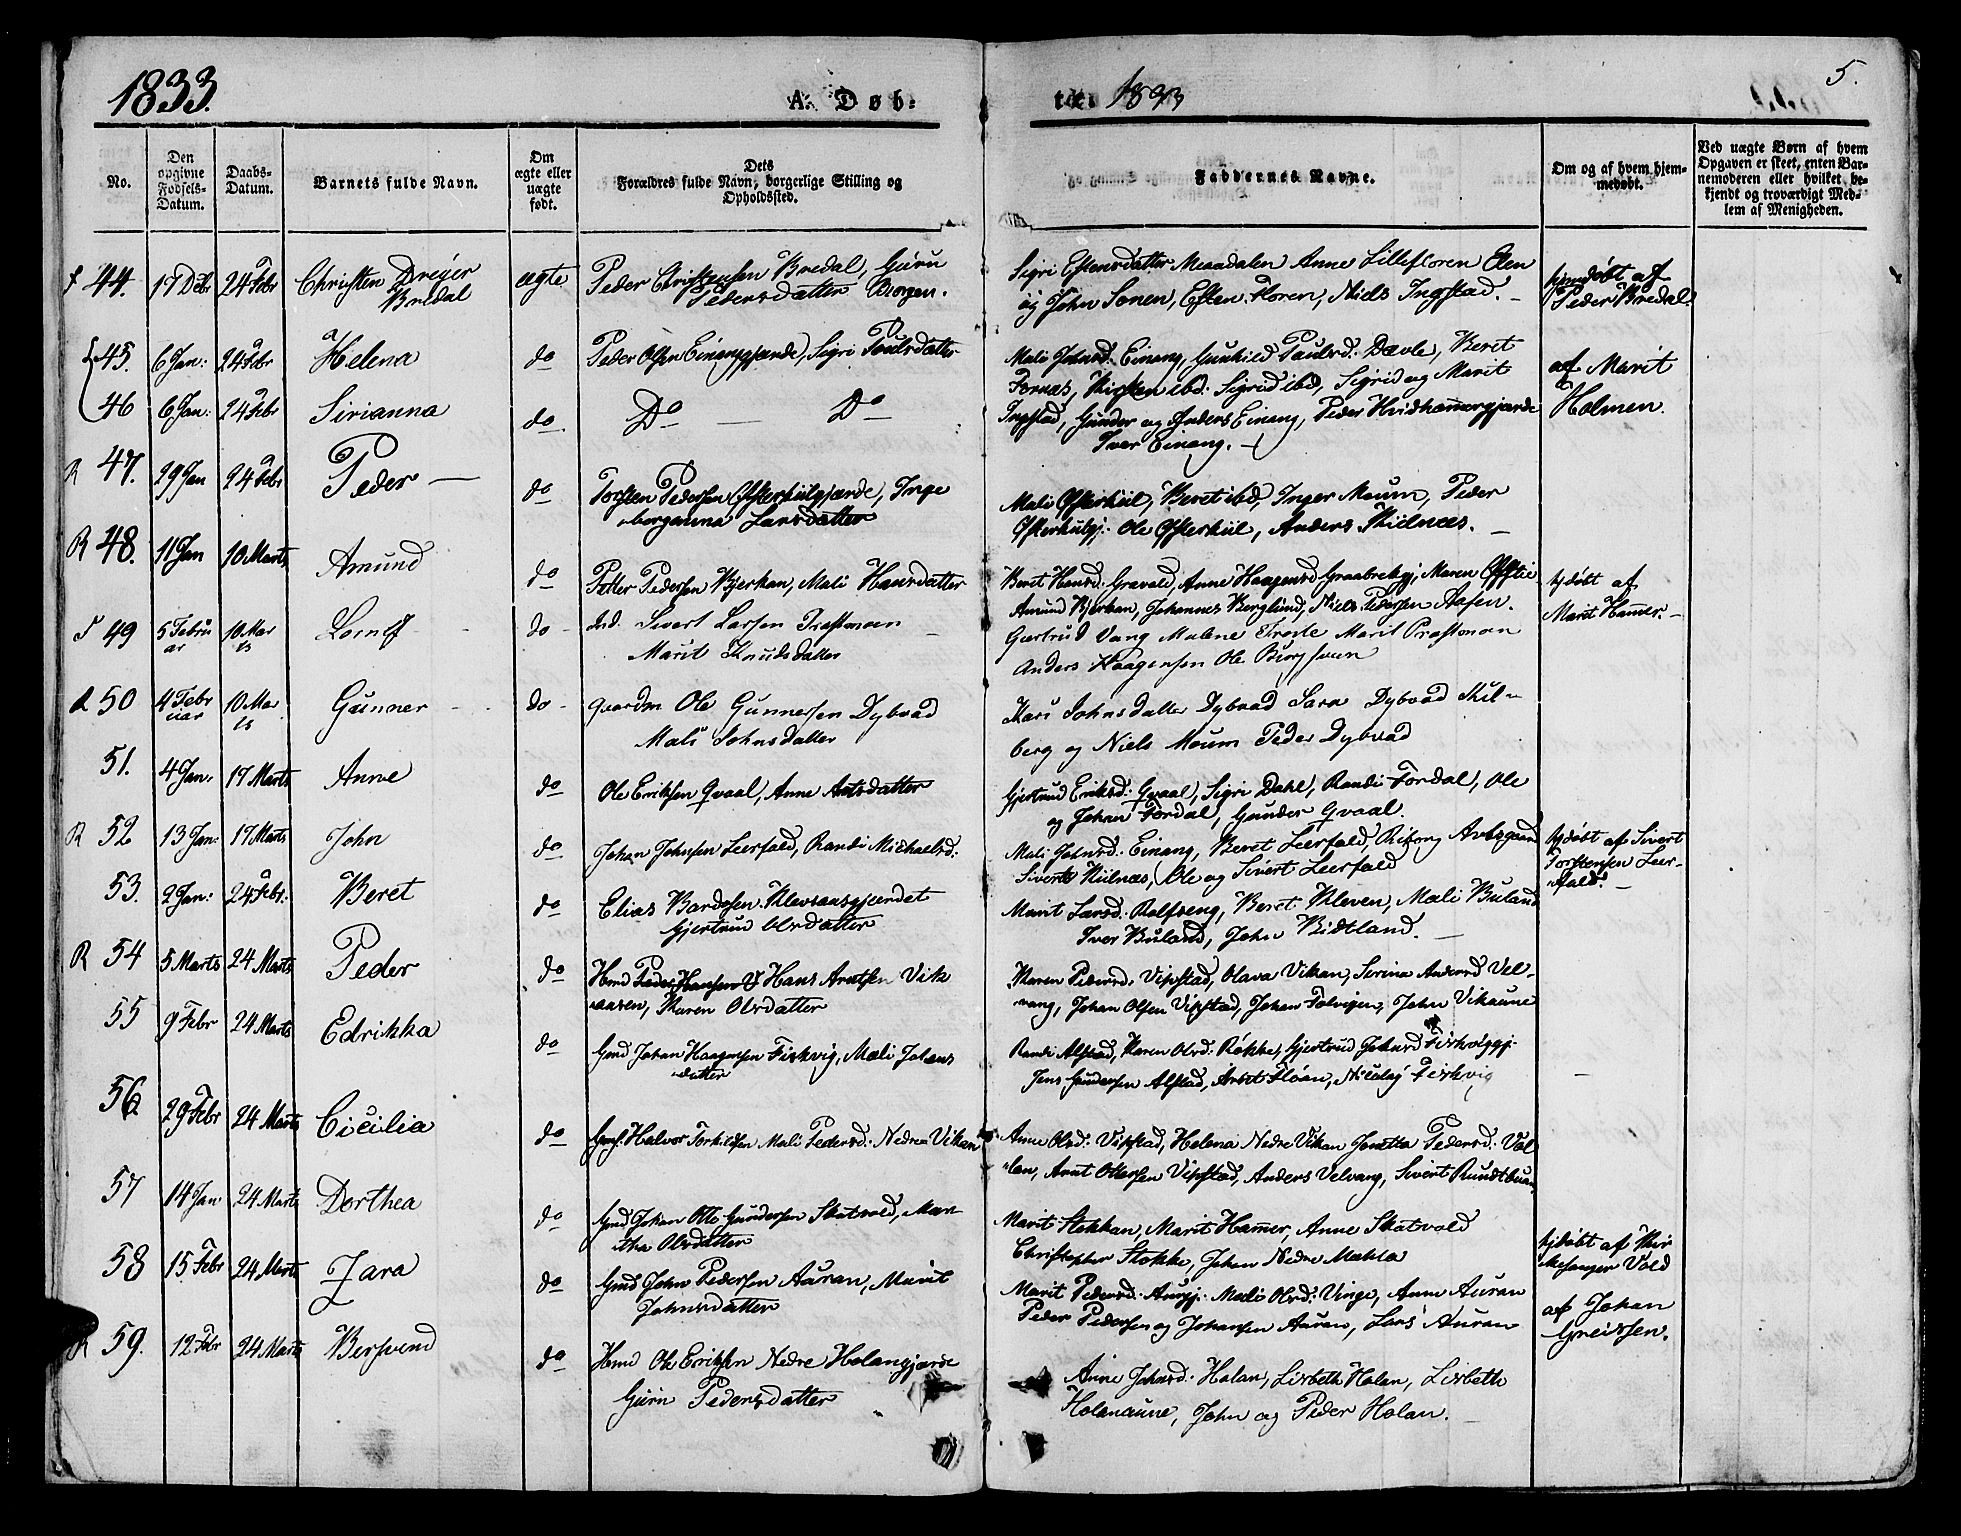 1833.
A. Døb-
te. 1833
5.
No.
Den opgivne Fødsels-Datum.
Daabs-Datum.
Barnets fulde Navn.
Om ægte eller uægte født.
Dets Forældres fulde Navn, borgerlige Stilling og Opholdssted.
Faddernes Navne.
Om og af hvem hjem-medøbt.
Ved uægte Børn af hvem Opgaven er skeet, enten Bar-nemoderen eller hvilket be-kjendt og troværdigt Med-lem af Menigheden.
44. 17 Deb 24 Febr Christen Dreyer Bredal ægte Peder Christensen Bredal, Gurũ
Pedersdatter Borgen.
Sigri Estensdatter Meradalen Anne Lillefloren Elen
og John Sonen, Esten Floren, Niels Ingstad.
hjemdøbt af
Peder Bredal.
45. 6 Jan: 24 Febr Helena do Peder Olsen Einanggjærde, Sigri Poulsdatter
Mali Johnsd: Einang, Gunhild Paulsd: Dævle, Beret
Fornæs, Kirsten ibd: Sigrid ibd, Sigrid og Marit
af Marit
46 6 Jan: 24 Febr Sirianna do Do — Do
Ingstad, Gunder og Anders Einang, Peder Hvidhamergjærde
Iver Einang.
Holmen.
R 47. 29 Jan 24 Febr Peder — do Torsten Pedersen Øfsterkiilgjærde, Inge
berganna Larsdatter
Mali Øfsterkiil, Beret ibd, Inger Moum, Peder
Øfsterkiilgj: Ole Øfsterkiil, Anders Kiilnæs.
R 48. 11 Jan 10 Marts Amund do Petter Pedersen Bjerkan, Mali Hansdatter
Beret Hansd: Gravald, Anne Haagensd Graabrekgj, Maren Øfstie
Amund Bjerkan, Johannes Berglund, Niels Pedersen Aasen.
hjdøbt af
Marit Hamer.
49 5 Februar 10 Marts do Ind. Sivert Larsen Præstmoen
Marit Knudsdatter
Gjertrud Vang Malene Troste Marit Præstmoen
Anders Haagensen Ole Borgsveen
50 4 Februar 10 Marts Gunner do Gaardm Ole Gunnersen Dybvad
Mali Johnsdatter
Kari Johnsdatter Dybvad Sara Dybvad Skil-
berg og Niels Moum Peder Dybvad
51. 4 Jan: 17 Marts Anne do Ole Eriksen Qvaal, Anne Arntsdatter
Gjertrud Eriksd: Qvaal, Sigri Dahl, Randi Fordal, Ole
og Johan Fordal, Gunder Qvaal.
R 52 13 Jan: 17 Marts John do Johan Johnsen Leerfald, Randi Michaelsd:
Mali Johnsd: Einang, Beret Leerfald,
Sivert Kiilnæs, Ole og Sivert Leerfald
hjdøbt af Sivert
Torstensen Leer-
fald.
53. 2 Jan: 24 Febr: Beret do Elias Bardosen Klevsaasgjærdet
Gjertrud Olsdatter
Marit Larsd: Rolfseng, Beret Kleven, Mali Buland
Iver Buland, John Bidtland.
R 54 5 Marts 24 Marts Peder do Hmd Peder Hansen Hans Arntsen Vik
aaren, Maren Olsdatter
Karen Pedersd: Vipstad, Olava Vikan, Serina Andersd Vel-
vang, John Olsen Vipstad, Johan Folvigen, John Vikaune
55 9 Febr 24 Marts Edrikka do Gmd Johan Haagensen Fiskvig, Mali Johans
datter
Randi Alstad, Karen Olsd: Røkke, Gjertrud Johnsd Fiskviggj.
Jens Gundersen Alstad, Arnt Fløan, Nicolay Fiskvig
56 29 Febr 24 Marts Cicilia do Halvor Torkildsen Mali Pedersd: Nedre Vikan
Anne Olsd: Vipstad, Helena Nedre Vikan Jonetta Pedersd: Vol-
len, Arnt Ottersen Vipstad, Anders Velvang, Sivert
57 14 Jan 24 Marts Dorthea do Gmd Johan Otto Gundersen Skatvold, Mar-
tha Olsdatter
Marit Stokkan, Marit Hamer, Anne Skatvold
Christopher Stokke, Johan Nedre Mæhla
hjdøbt af Kir
kesanger Vold
58 15 Febr 24 Marts Zara do Gmd John Pedersen Auran, Marit
Johnsdatter
Marit Pedersd: Aurgj. Malo Olsd: Vinge, Anne Auran
Peder Pedersen og Johansen Auran, Lars Auran
af Johan
Greissen.
R 59. 12 Febr 24 Marts Bersvend do Hmd Ole Eriksen Nedre Holangjærde
Gurin Pedersdatter
Anne Johnsd: Holan, Lisbeth Holan, Lisbeth
Holanaune, John og Peder Holan.